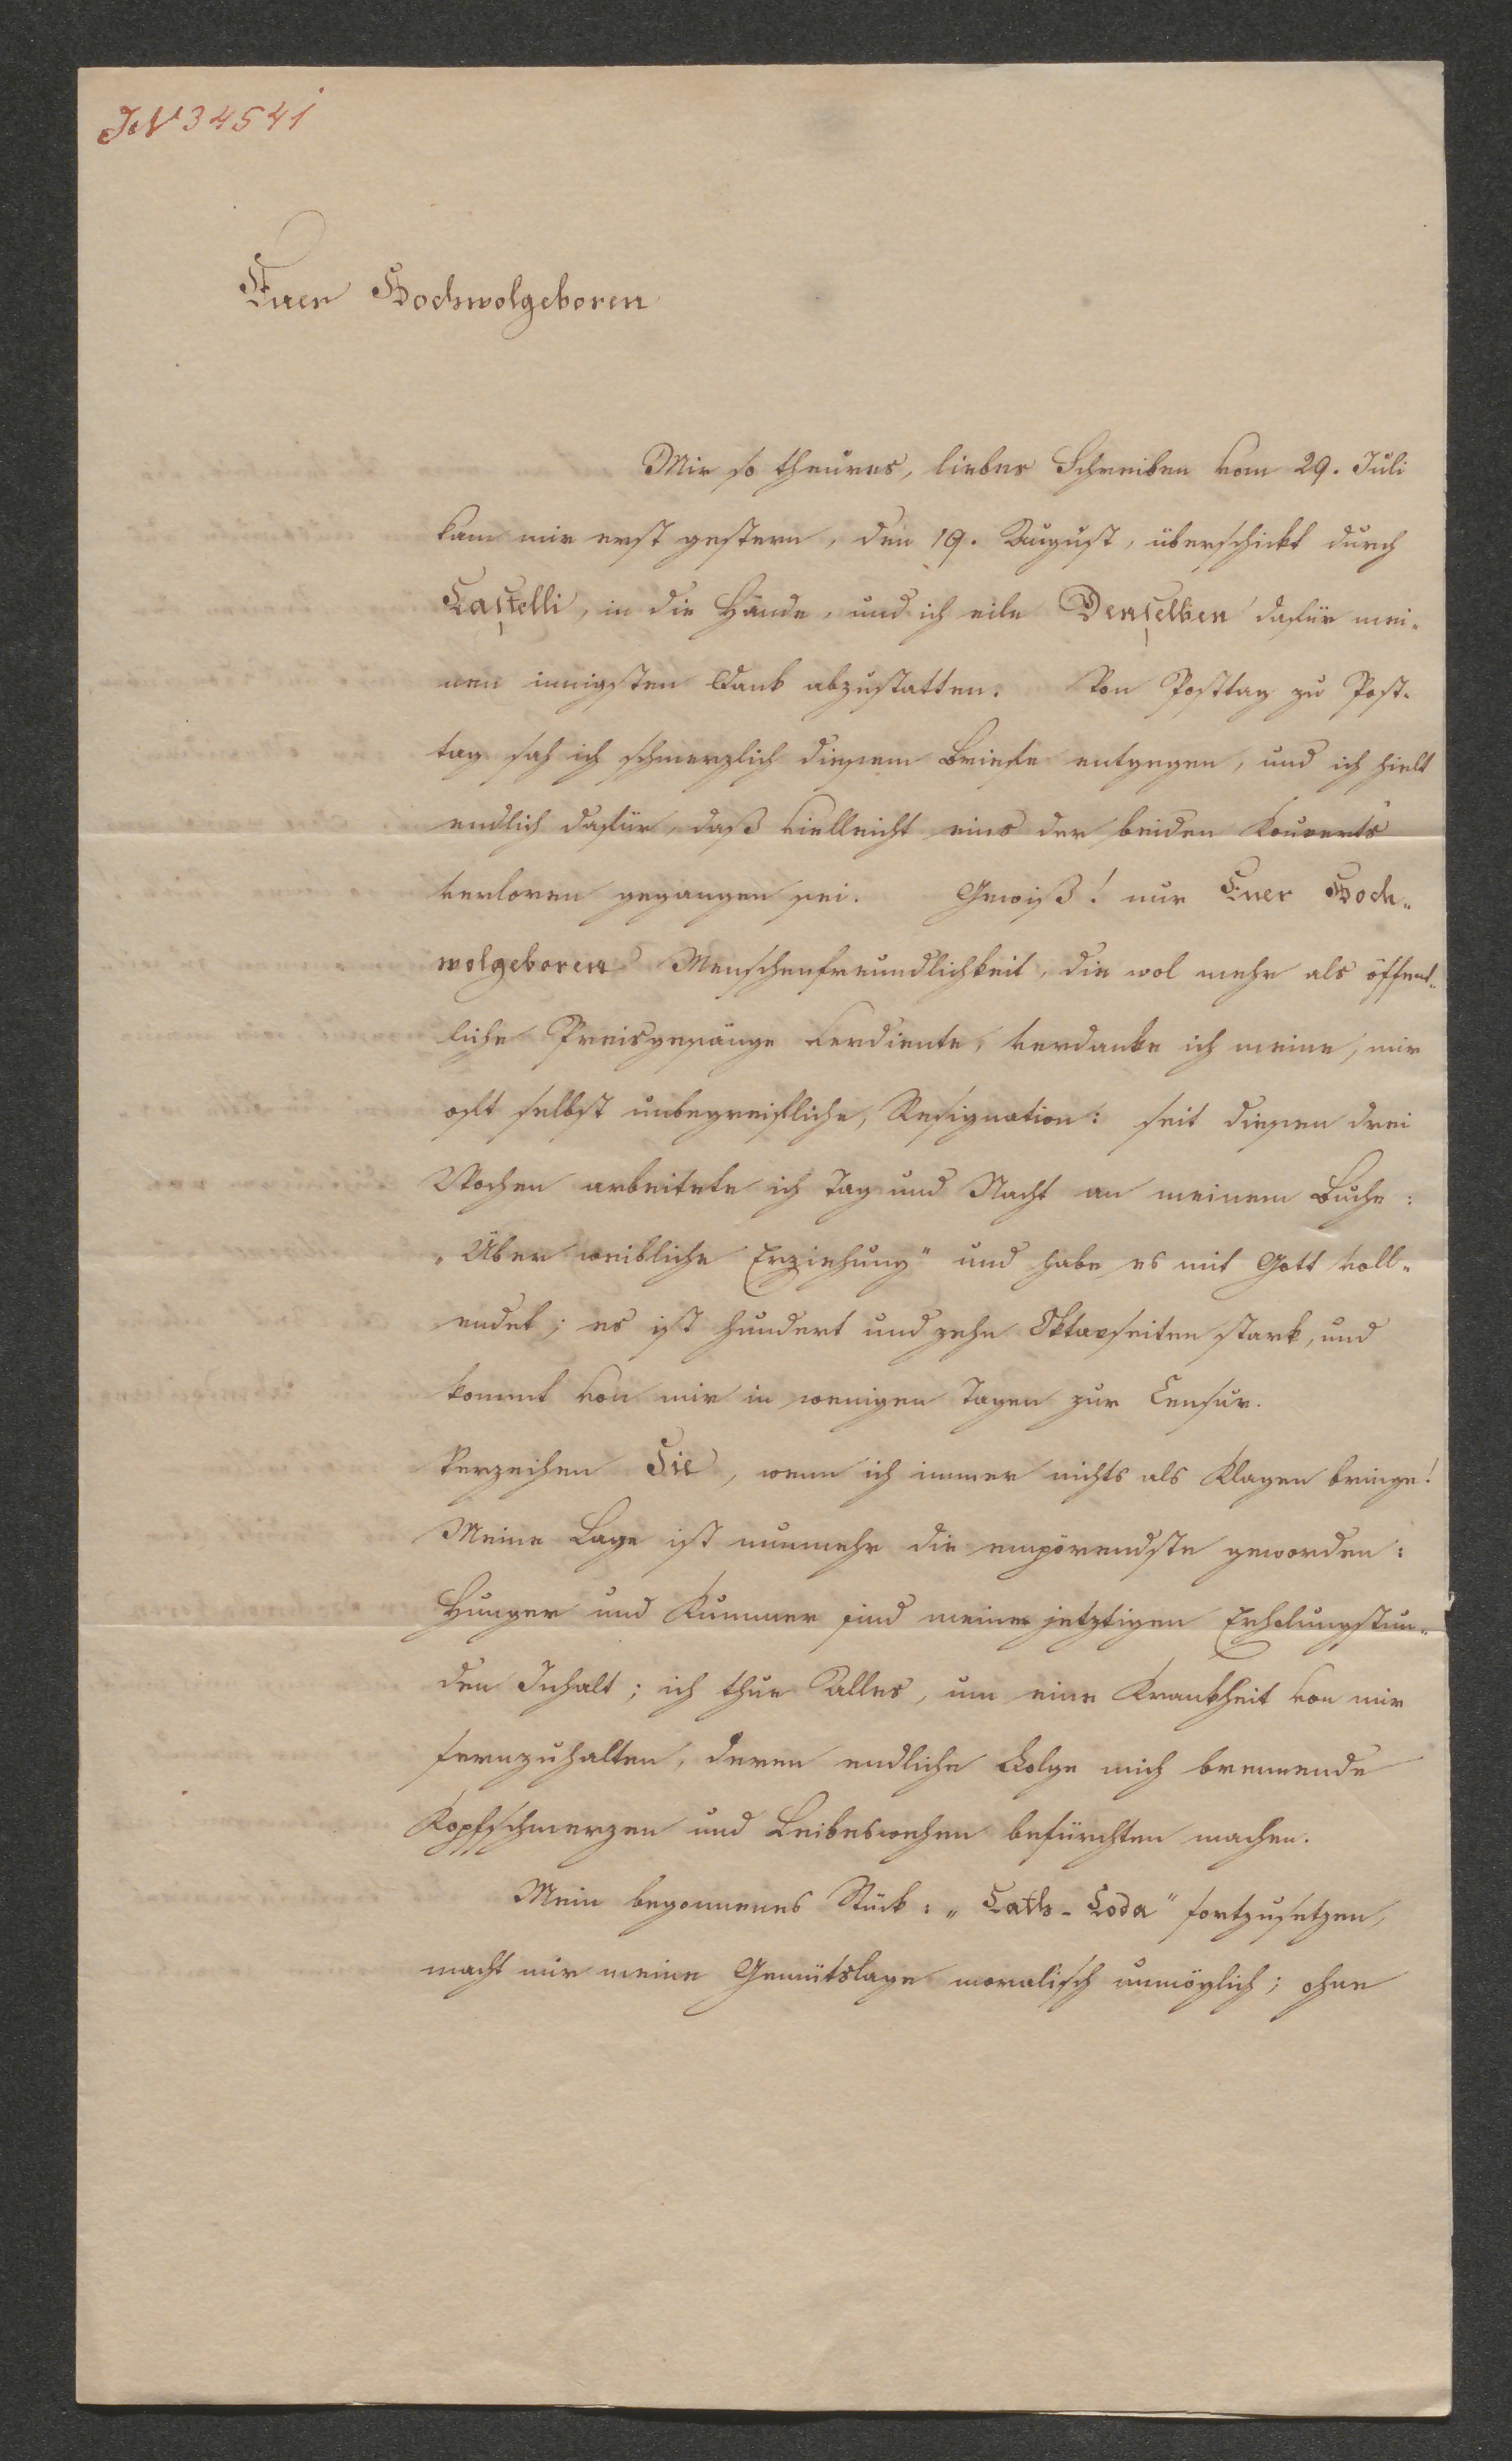 JN 34541
Euer Hochwolgeboren
Mir so theures, liebes Schreiben vom 29. Juli
kam mir erst gestern, den 19. August, überschickt durch
Castelli, in die Hände, und ich eile Denselben dafür mei-
nen innigsten Dank abzustatten. Von Posttag zu Post-
tag sah ich schmerzlich diesem Briefe entgegen, und ich hielt
endlich dafür, daß vielleicht eins der beiden Kouverts
verloren gegangen sei. Gewiß! nur Euer Hoch-
wolgeboren Menschenfreundlichkeit, die wol mehr als öffent-
liche Preisgesänge verdiente, verdanke ich meine, mir
oft selbst unbegreifliche, Resignation: seit diesen drei
Wochen arbeitete ich Tag und Nacht an meinem Buche:
„Über weibliche Erziehung" und habe es mit Gott voll-
endet; es ist hundert und zehn Oktavseiten stark, und
kommt von mir in wenigen Tagen zur Censur.
Verzeihen Sie, wenn ich immer nichts als Klagen bringe!
Meine Lage ist nunmehr die empörendste geworden:
Hunger und Kummer sind meiner jetztigen Erholungstun-
den Inhalt; ich thue Alles, um eine Krankheit von mir
fernzuhalten, deren endliche Folge mich brennende
Kopfschmerzen und Leibeswehen befürchten machen.
Mein begonnenes Stück: „Cath-Loda" fortzusetzen,
macht mir meine Gemütslage moralisch unmöglich; ohne